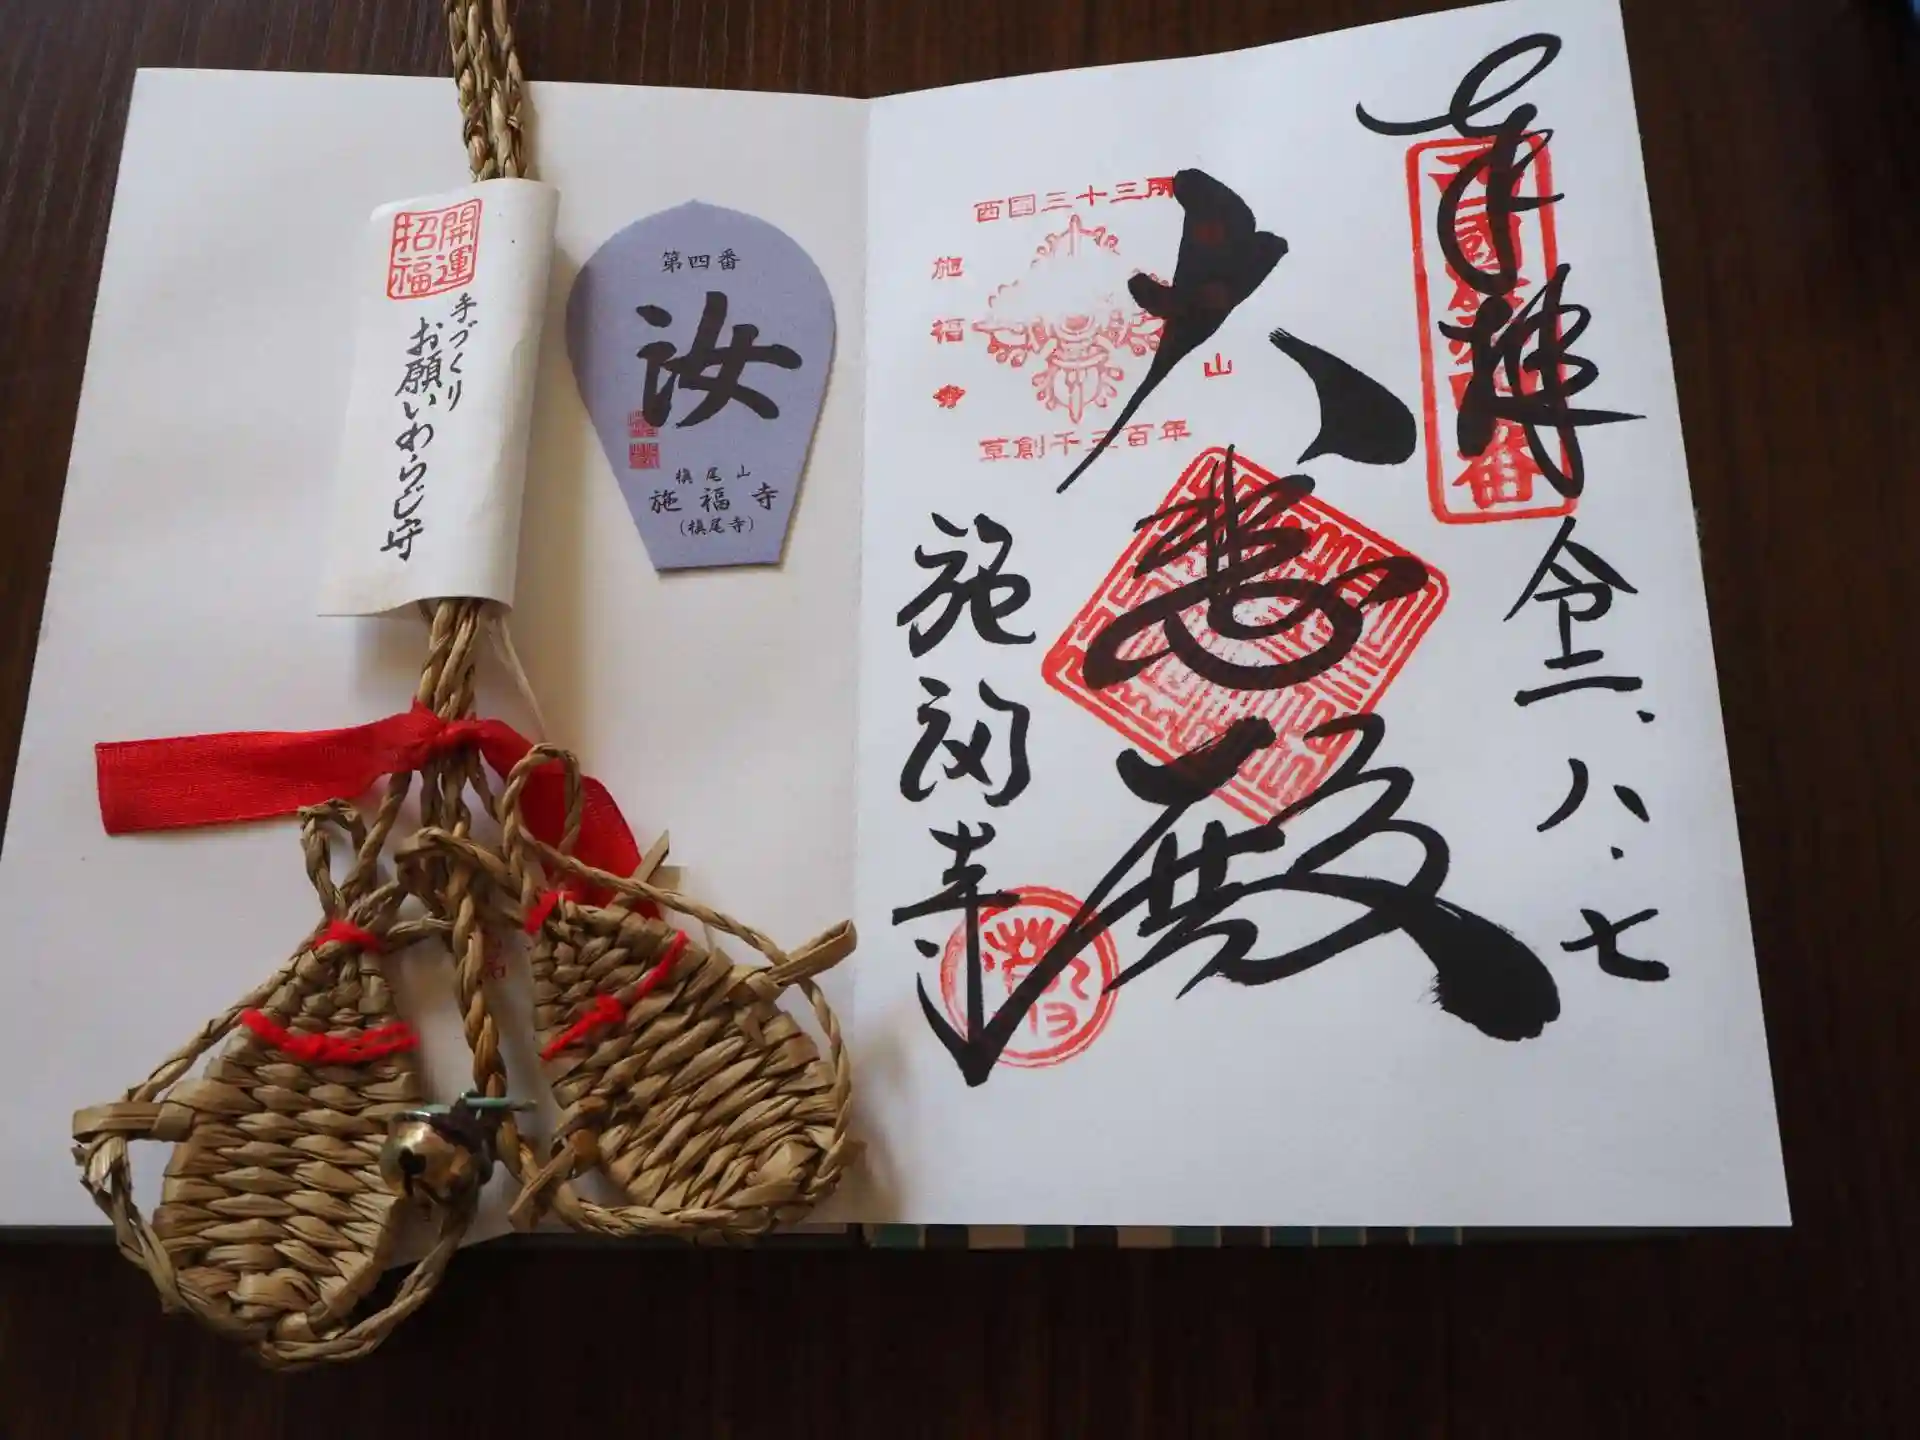 開運
招福
手づくり
お願いわらじ守
第四番
汝
槙尾山
施福寺
(槙尾寺)
奉拝
令二、八・七
西国三十三所
施福寺
山
草創千三百年
大悲殿
施福寺